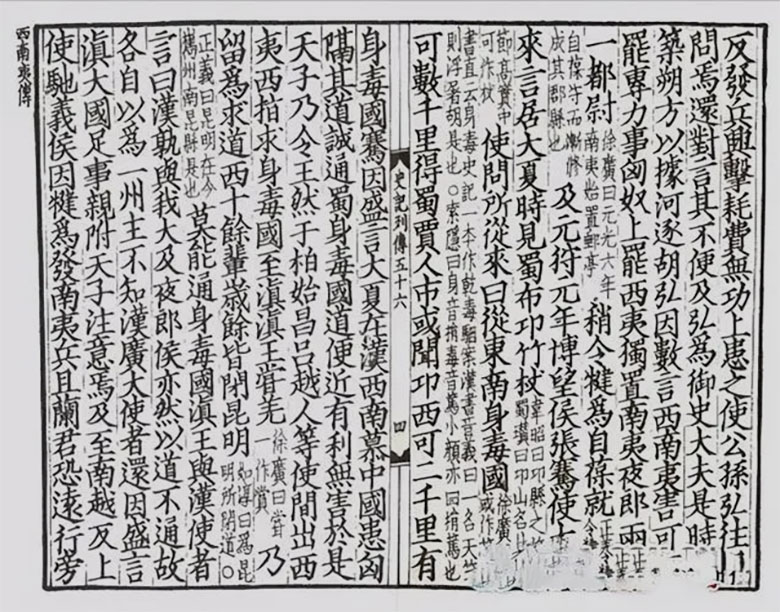 反發兵興擊耗費無功上患之使公孫弘往
問焉還對言其不便及弘爲御史大夫是時
築朔方以據河逐胡弘因數言西南夷害可
罷專力事匈奴上罷西夷獨置南夷夜郎兩
一都尉徐廣曰元光六年南夷始置郵亭稍令犍爲自葆就正義令犍
自葆守而漸修成其郡縣也及元狩元年博望侯張騫使
來言居大夏時見蜀布卭竹杖韋昭曰卭縣之竹屬蜀瓚曰卭山名此
節高實中可作杖使問所從來曰從東南身毒國徐廣曰或作竺
書直云身毒史記一本作乾毒駰案漢書音義曰一名天竺則浮屠胡是也○索隱曰身音捐毒音篤小顏亦曰捐篤也
可數千里得蜀賈人市或聞卭西可二千里有
史記列傳五十六 四
身毒國騫因盛言大夏在漢西南慕中國患匈
隔其道誠通蜀身毒國道便近有利無害於是
天子乃令王然于柏始昌呂越人等使間出西
夷西指求身毒國至滇滇王嘗羌徐廣曰嘗一作賞乃
留爲求道西十餘輩歲餘皆閉昆明如淳曰爲昆明所閉道○
正義曰昆明在今巂州南昆縣是也莫能通身毒國滇王與漢使者
言曰漢孰與我大及夜郎侯亦然以道不通故
各自以爲一州主不知漢廣大使者還因盛言
滇大國足事親附天子注意焉及至南越反上
使馳義侯因犍爲發南夷兵且蘭君恐遠行旁
西南夷傳